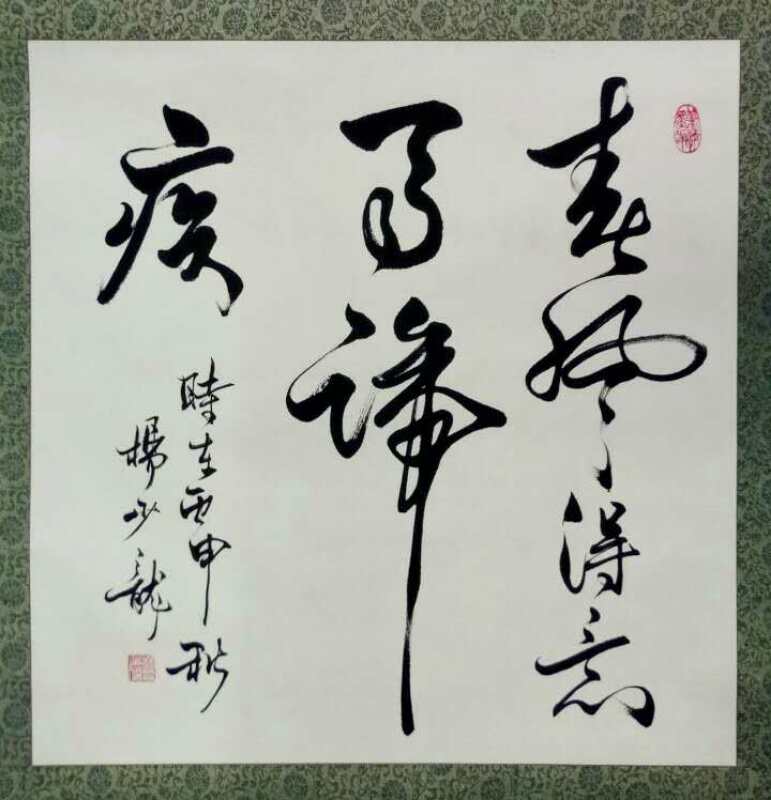 春風得意
馬蹄
疾
時在丙申秋
楊少龍